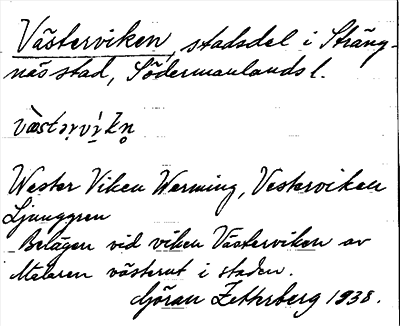 Västerviken, stadsdel i Sträng-
näs stad, Södermanlands l.
væ̀stərvìkn̥
Wester Viken Werming, Vesterviken
Ljunggren
Belägen vid viken Västerviken av
Mälaren västerut i staden.
Göran Zethrberg 1938.